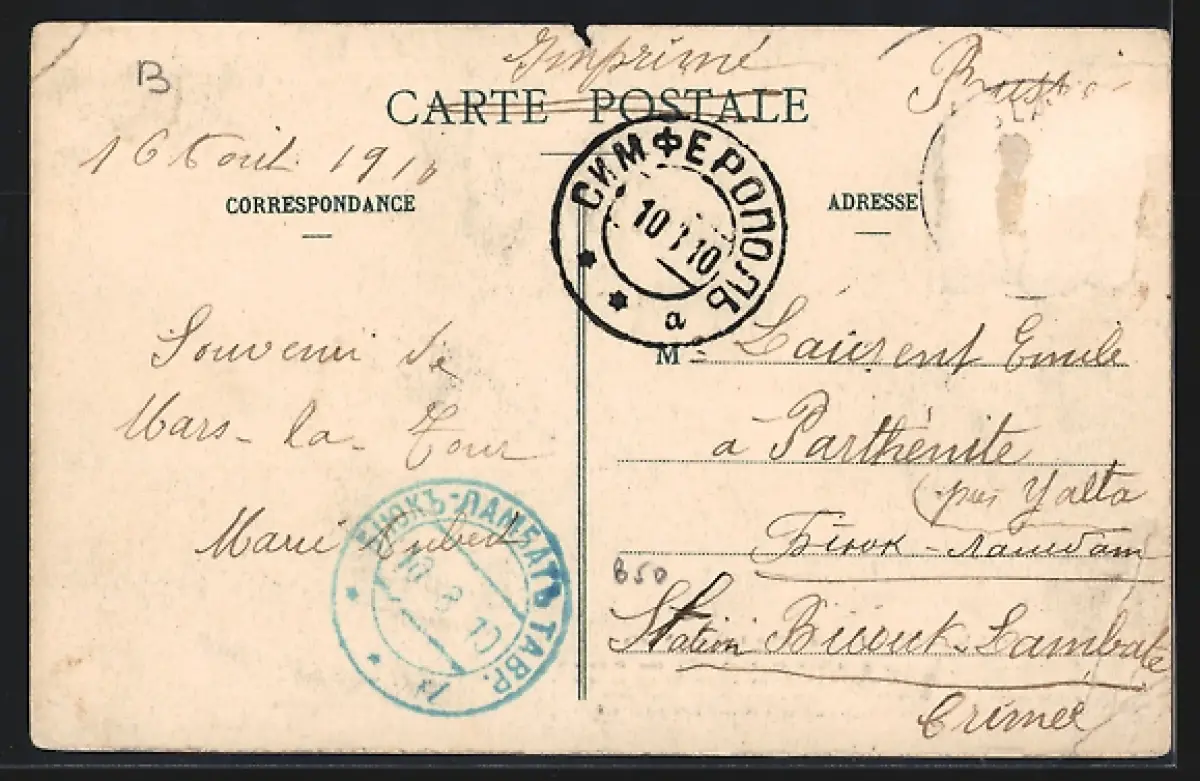 B
Imprimé
CARTE POSTALE
16 Aout 1910
CORRESPONDANCE
ADRESSE
СИМФЕРОПОЛЬ
10 10
а
Souvenir de
Mars-la-Tour
Marie Hubert
БІЮКЪ-ЛАМБАТЪ ТАВР.
10 8 10
M Laurent Emile
a Parthénite
(près Yalta
Біюк-Ламбат
B50
Station Biouk-Lambate
Crimée